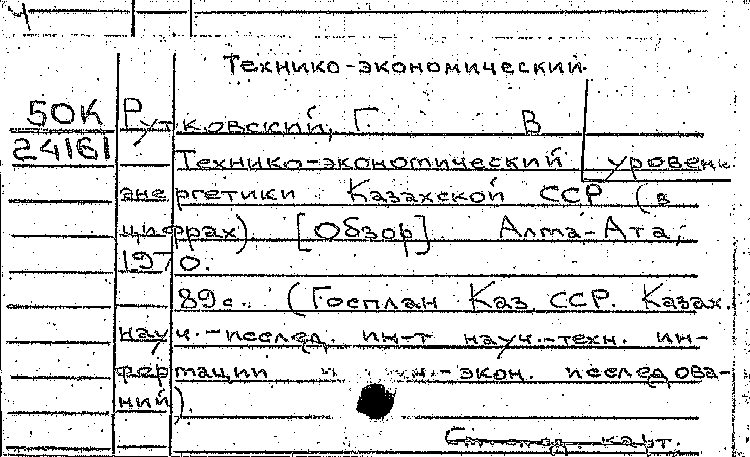 Ч
Технико-экономический
50К Рутковский, Г В
24161 Технико-экономический уровень
энергетики Казахской ССР (в
цифрах) [Обзор]. Алма-Ата,
1970.
89с. (Госплан Каз. ССР. Казах.
науч.-исслед. ин-т науч.-техн. ин-
формации и -экон. исследова-
ний)
карт.